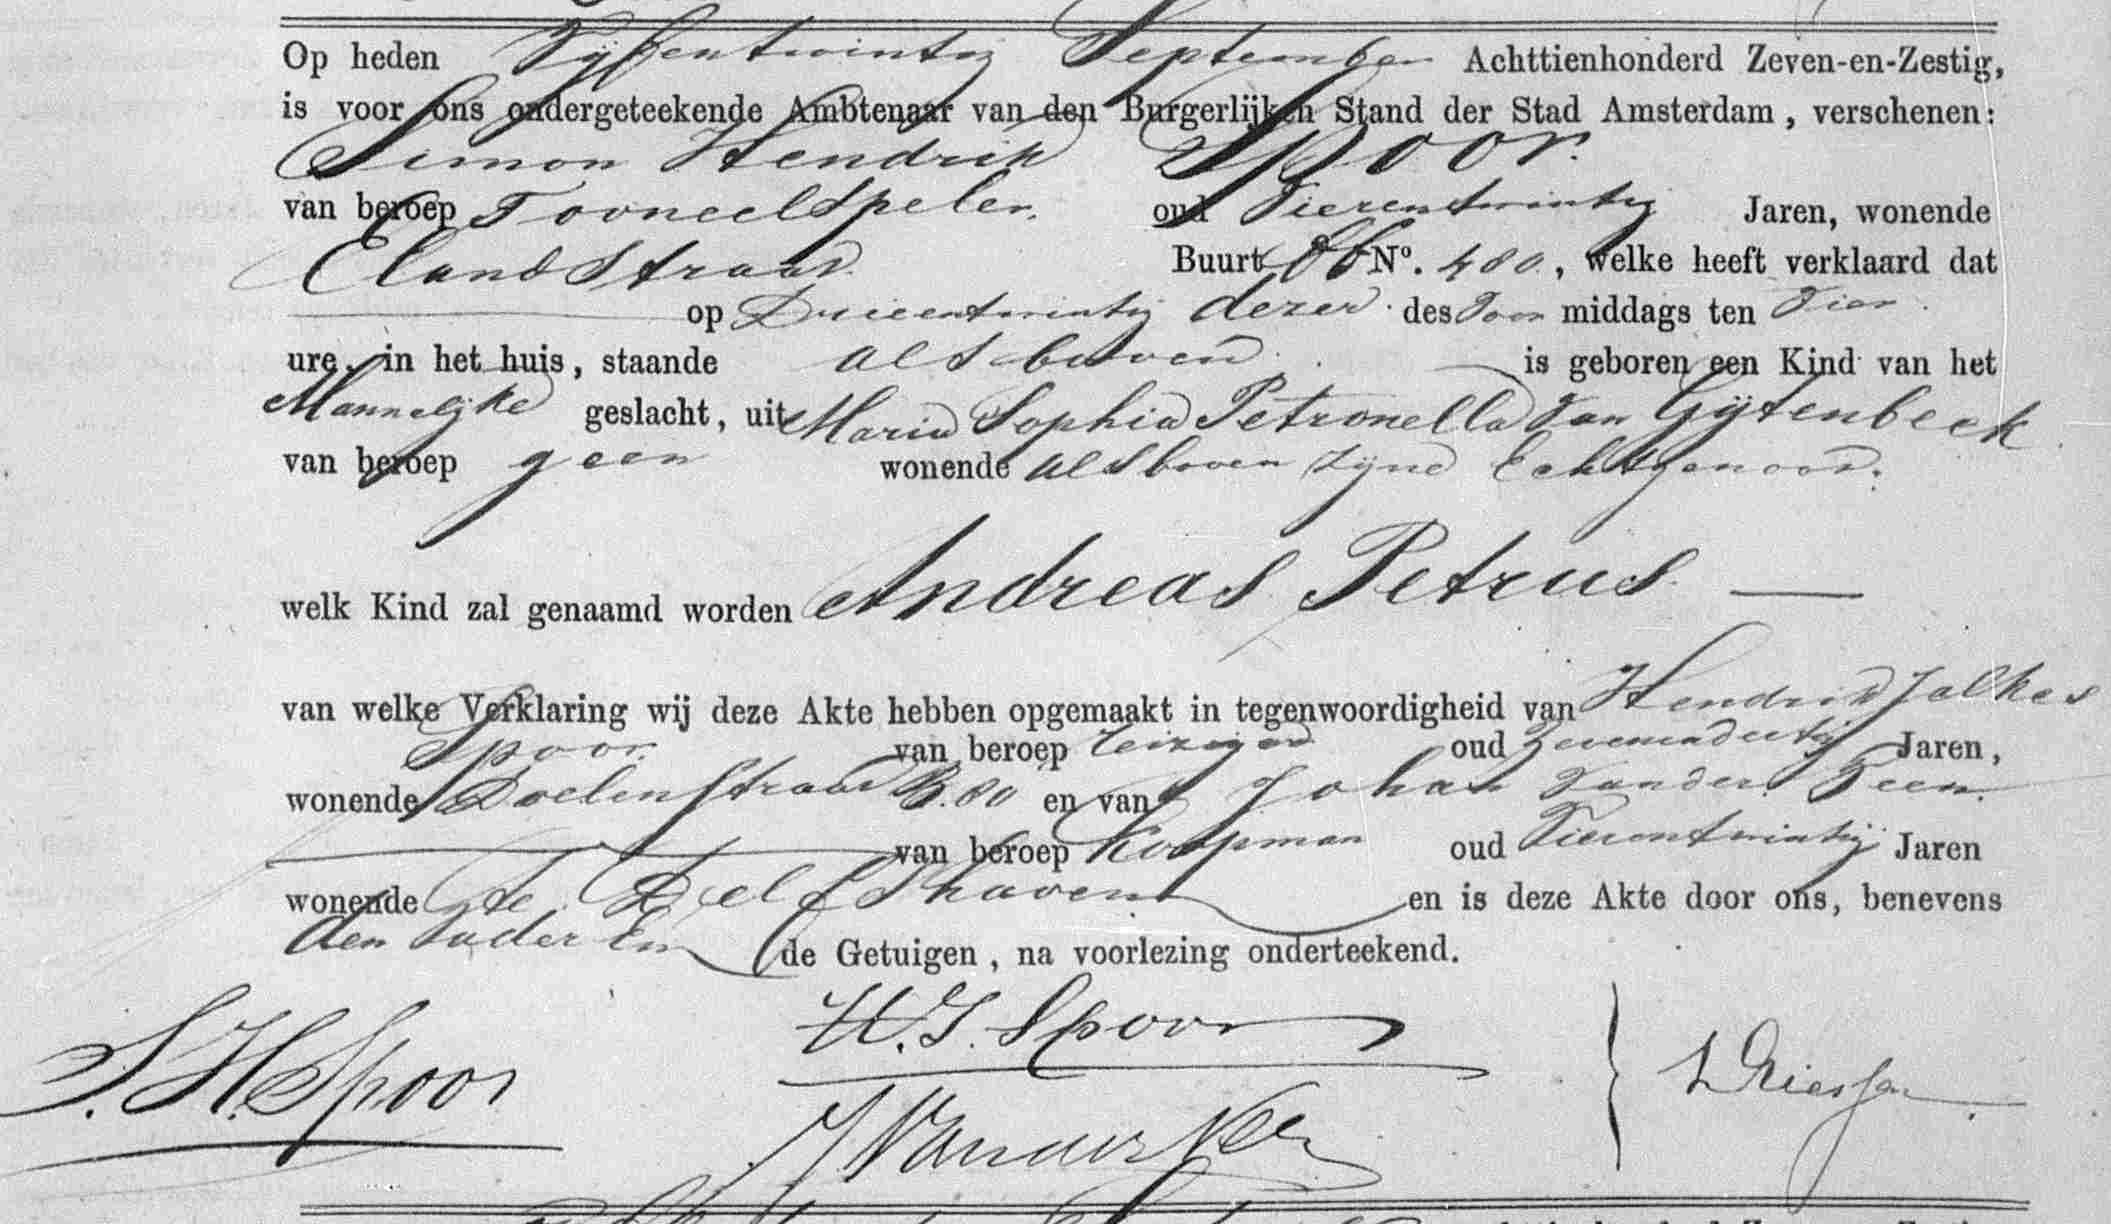 Op heden Vyfentwintig September Achttienhonderd Zeven-en-Zestig,
is voor ons ondergeteekende Ambtenaar van den Burgerlijken Stand der Stad Amsterdam, verschenen:
Simon Hendrik Spoor.
van beroep Tooneelspeler. oud Vierentwintig Jaren, wonende
Elandstraat. Buurt No. 480, welke heeft verklaard dat
op Drieentwintig dezer des Voor middags ten Vier
ure, in het huis, staande als boven is geboren een Kind van het
Mannelyke geslacht, uit Maria Sophia Petronella Van Gytenbeek
van beroep geen wonende als boven zyne Echtgenoot.
welk Kind zal genaamd worden Andreas Petrus —
van welke Verklaring wij deze Akte hebben opgemaakt in tegenwoordigheid van Hendrik Jalkes
Spoor. van beroep reiziger oud zevenendertig Jaren,
wonende Doelenstraat B.80 en van Johan Vander Veen.
van beroep Koopman oud Vierentwintig Jaren
wonende te Delfshaven en is deze Akte door ons, benevens
den Vader en de Getuigen, na voorlezing onderteekend.
H.J. Spoor
S.H. Spoor
J Vander Veen